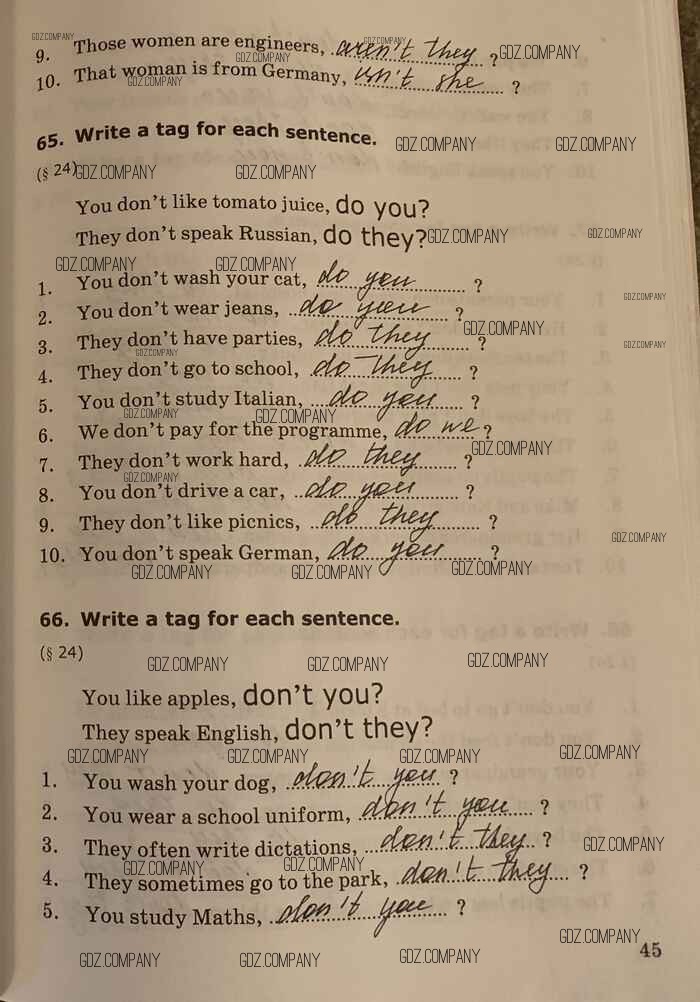 GDZ.COMPANY GDZ.COMPANY
9. Those women are engineers, aren't they ? GDZ.COMPANY
GDZ.COMPANY
10. That woman is from Germany, isn't she ?
GDZ.COMPANY
65. Write a tag for each sentence. GDZ.COMPANY GDZ.COMPANY
(§ 24) GDZ.COMPANY GDZ.COMPANY
You don't like tomato juice, do you?
They don't speak Russian, do they? GDZ.COMPANY GDZ.COMPANY
GDZ.COMPANY GDZ.COMPANY
1. You don't wash your cat, do you ?
GDZ.COMPANY
2. You don't wear jeans, do you ?
GDZ.COMPANY
3. They don't have parties, do they ?
GDZ.COMPANY GDZ.COMPANY
4. They don't go to school, do they ?
5. You don't study Italian, do you ?
GDZ.COMPANY GDZ.COMPANY
6. We don't pay for the programme, do we ?
GDZ.COMPANY
7. They don't work hard, do they ?
GDZ.COMPANY
8. You don't drive a car, do you ?
9. They don't like picnics, do they ?
GDZ.COMPANY
10. You don't speak German, do you ?
GDZ.COMPANY GDZ.COMPANY GDZ.COMPANY
66. Write a tag for each sentence.
(§ 24)
GDZ.COMPANY GDZ.COMPANY GDZ.COMPANY
You like apples, don't you?
They speak English, don't they?
GDZ.COMPANY GDZ.COMPANY GDZ.COMPANY GDZ.COMPANY
1. You wash your dog, don't you ?
2. You wear a school uniform, don't you ?
3. They often write dictations, don't they ? GDZ.COMPANY
GDZ.COMPANY GDZ.COMPANY
4. They sometimes go to the park, don't they ?
5. You study Maths, don't you ?
GDZ.COMPANY
45
GDZ.COMPANY GDZ.COMPANY GDZ.COMPANY